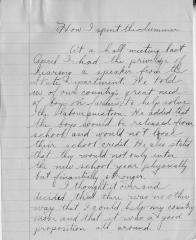 How I spent the Summer
At a hall meeting last
April I had the privilege of
hearing a speaker from the
State Department. He told
of our country's great need
of boys on farms to help solve
the labor question. He added that
the boys would be released from
school and would not lose
their school credit. He also stated
that they would not only enter
the new school year physically
but financially stronger.
I thought it over and
decided that there was no other
way that I could help my country
more and that it was a good
proposition all around.